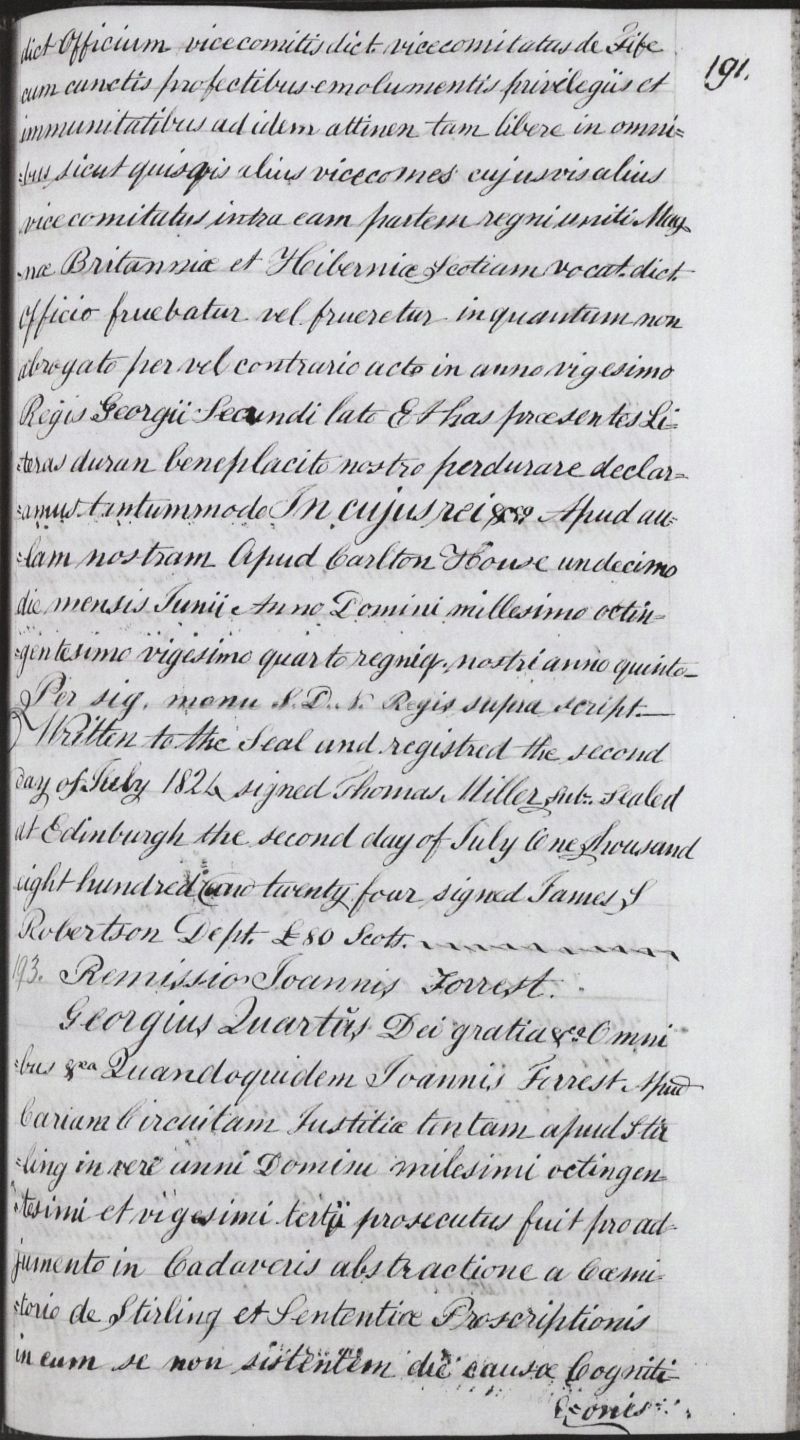 dict Officium vicecomitis dict. vicecomitatus de Fife
191.
cum cunctis profectibus emolumentis privilegiis et
immunitatibus ad idem attinen tam libere in omni=
=bus sicut quisquis alius vicecomes cujusvis alius
vicecomitatus intra eam partem regni uniti Mag
=næ Britanniæ et Hiberniæ Scotiam vocat. dict.
Officio fruebatur vel frueretur in quantum non
abrogato per vel contrario acto in anno vigesimo
Regis Georgii Secundi lato Et has præsentes Li=
=teras duran beneplacito nostro perdurare declar=
=amus tantummodo In cujus rei &ca Apud au=
=lam nostram Apud Carlton House undecimo
die mensis Junii Anno Domini millesimo octin=
=gentesimo vigesimo quarto regniq. nostri anno quinto—
Per sig. manu S. D. N. Regis supra script.—
Written to the Seal and registred the second
day of July 1824 signed Thomas Miller Sub. Sealed
at Edinburgh the second day of July One thousand
eight hundred and twenty four signed James S
Robertson Dept. £80 Scots.
193. Remissio Joannis Forrest.
Georgius Quartus Dei gratia &ca Omni
=bus &ca Quandoquidem Joannis Forrest Apud
Cariam Circuitam Justitiæ tentam apud Stir
=ling in vere anni Domini milesimi octingen
=tesimi et vigesimi tertii prosecutus fuit pro ad=
jumento in Cadaveris abstractione a Cœmi=
=torio de Stirling et Sententiæ Proscriptionis
in eum se non sistentem die causæ Cogniti
=onis